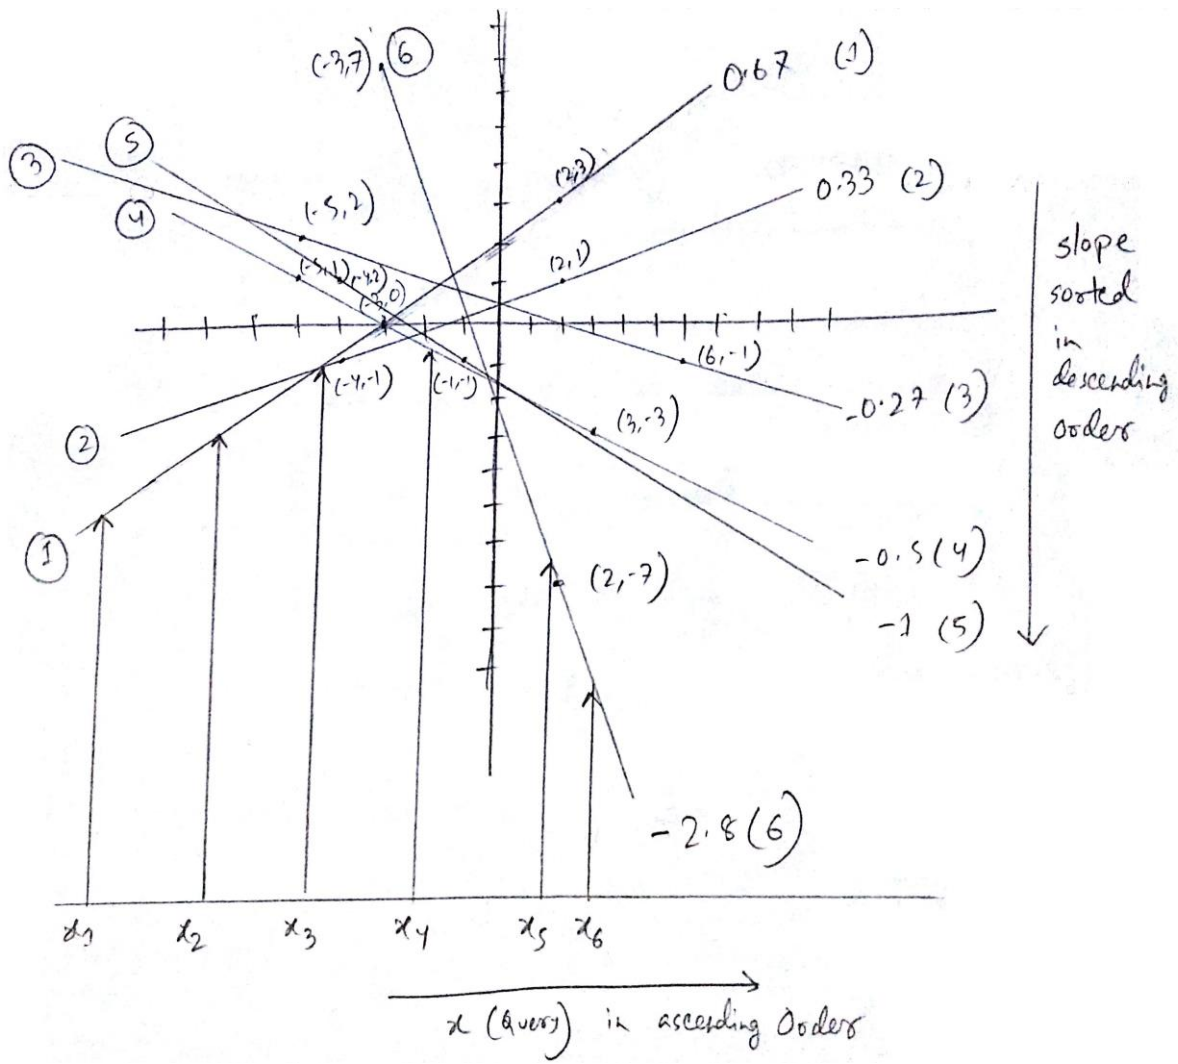 (-3,7) 6
0.67 (1)
5
3
4
(-5,2)
(2,3)
0.33 (2)
(-5,1) (-4,2)
(-3,0)
(2,1)
slope
sorted
in
descending
order
(-4,-1)
(-1,-1)
(6,-1)
-0.27 (3)
2
(3,-3)
1
-0.5 (4)
(2,-7)
-1 (5)
-2.8 (6)
x1 x2 x3 x4 x5 x6
x (Query) in ascending Order